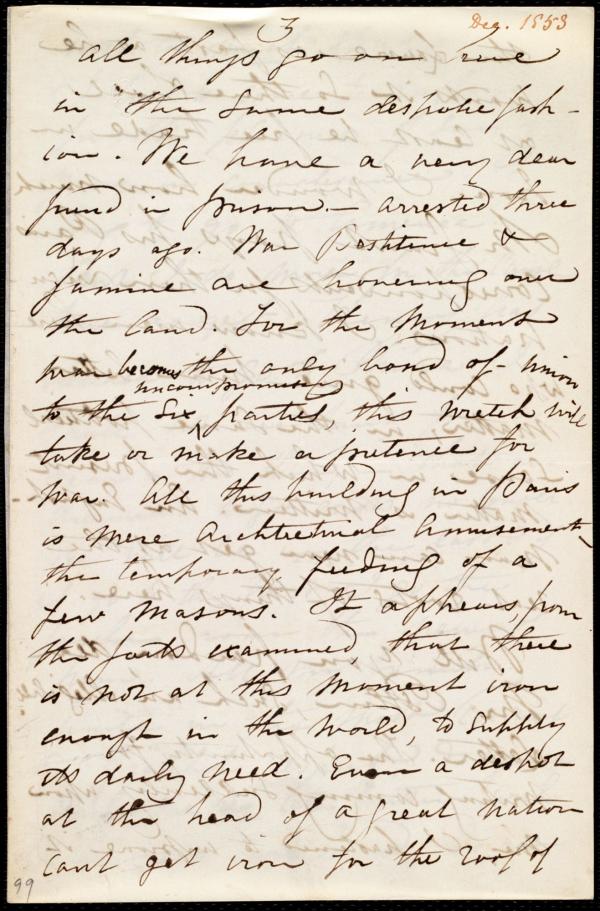 3
Dec. 1853
all things go on here
in the same despotic fash-
ion. We have a very dear
friend in prison — arrested three
days ago. War Pestilence &
famine are hovering over
the land. For the moment
war becomes the only bond of union
uncompromising
to the six ^ parties, this wretch will
take or make a pretence for
war. All this building in Paris
is mere architectual amusement,
the temporary feeding of a
few masons. It appears, from
the facts examined, that there
is not at this moment iron
enough in the world, to supply
its daily need. Even a despot
at the head of a great nation
cant get iron for the roof of
99